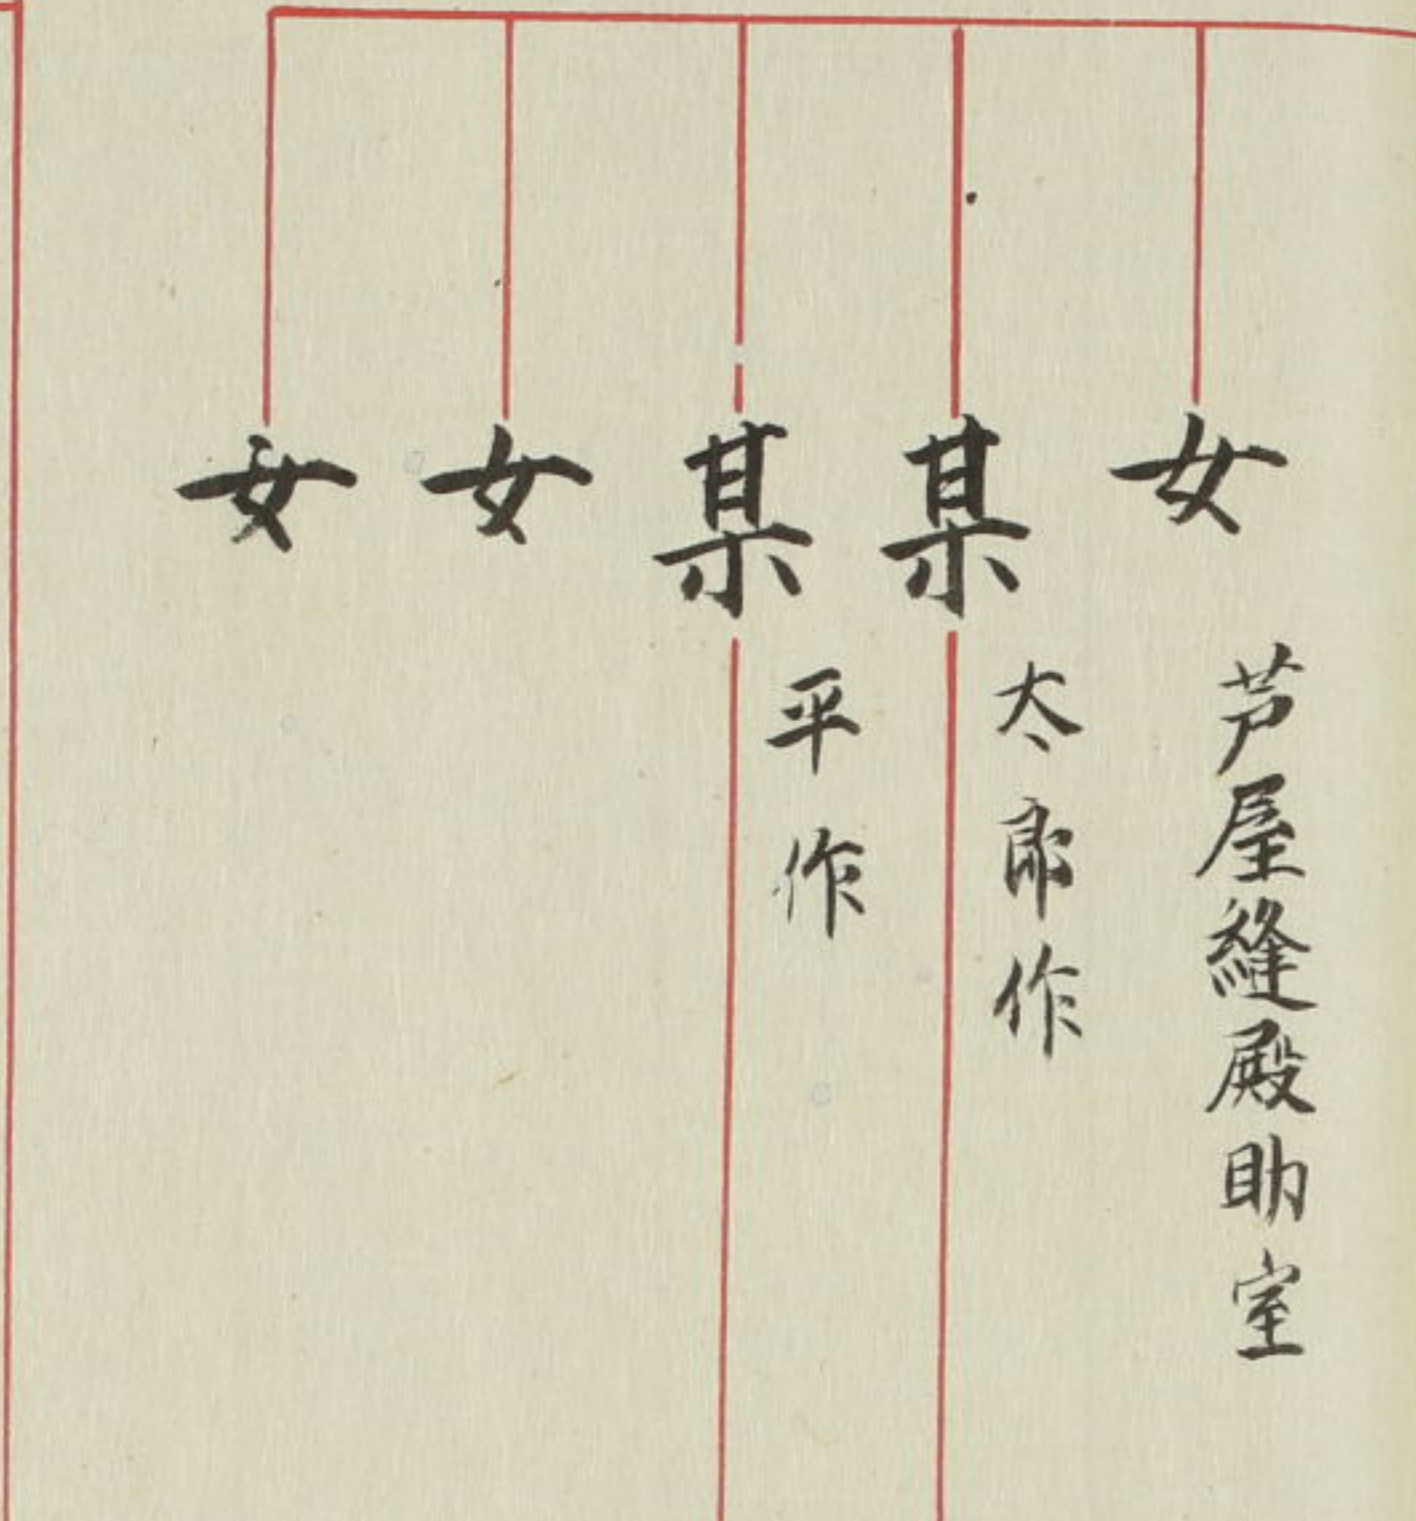 女
芦屋縫殿助室
某
太郎作
某
平作
女
女